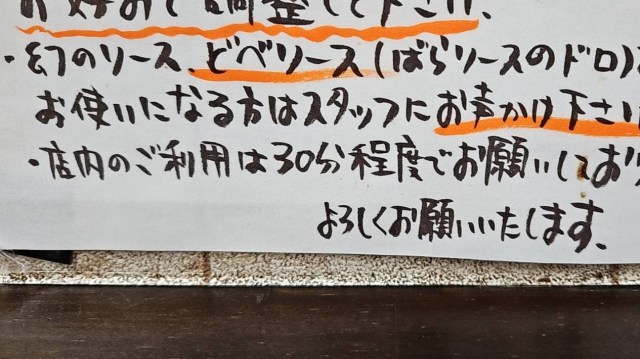 お好みで調整して下さい、
・幻のソース、どべソース(ばらソースのドロ)
お使いになる方はスタッフにお声かけ下さい
・店内のご利用は30分程度でお願いしてお
よろしくお願いいたします。